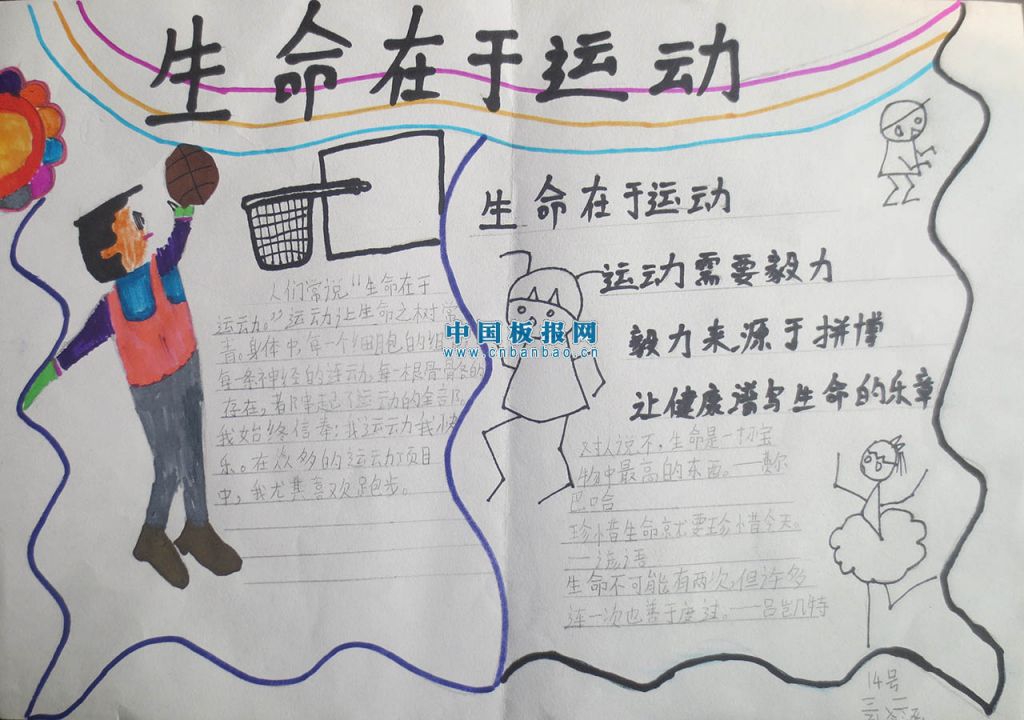 生命在于运动
人们常说“生命在于
运动。”运动让生命之树常
青。身体中,每一个细胞的组
每一条神经的连动,每一根骨骼的
存在,都牵起了运动的全部。
我始终信奉:我运动我快
乐。在众多的运动项目
中,我尤其喜欢跑步。
生命在于运动
运动需要毅力
毅力来源于拼博
让健康谱写生命的乐章
对人说不,生命是一切宝
物中最高的东西。——费尔
巴哈
珍惜生命就要珍惜今天。
——谚语
生命不可能有两次,但许多
连一次也善于度过。——吕凯特
中国板报网
www.cnbanbao.cn
14号